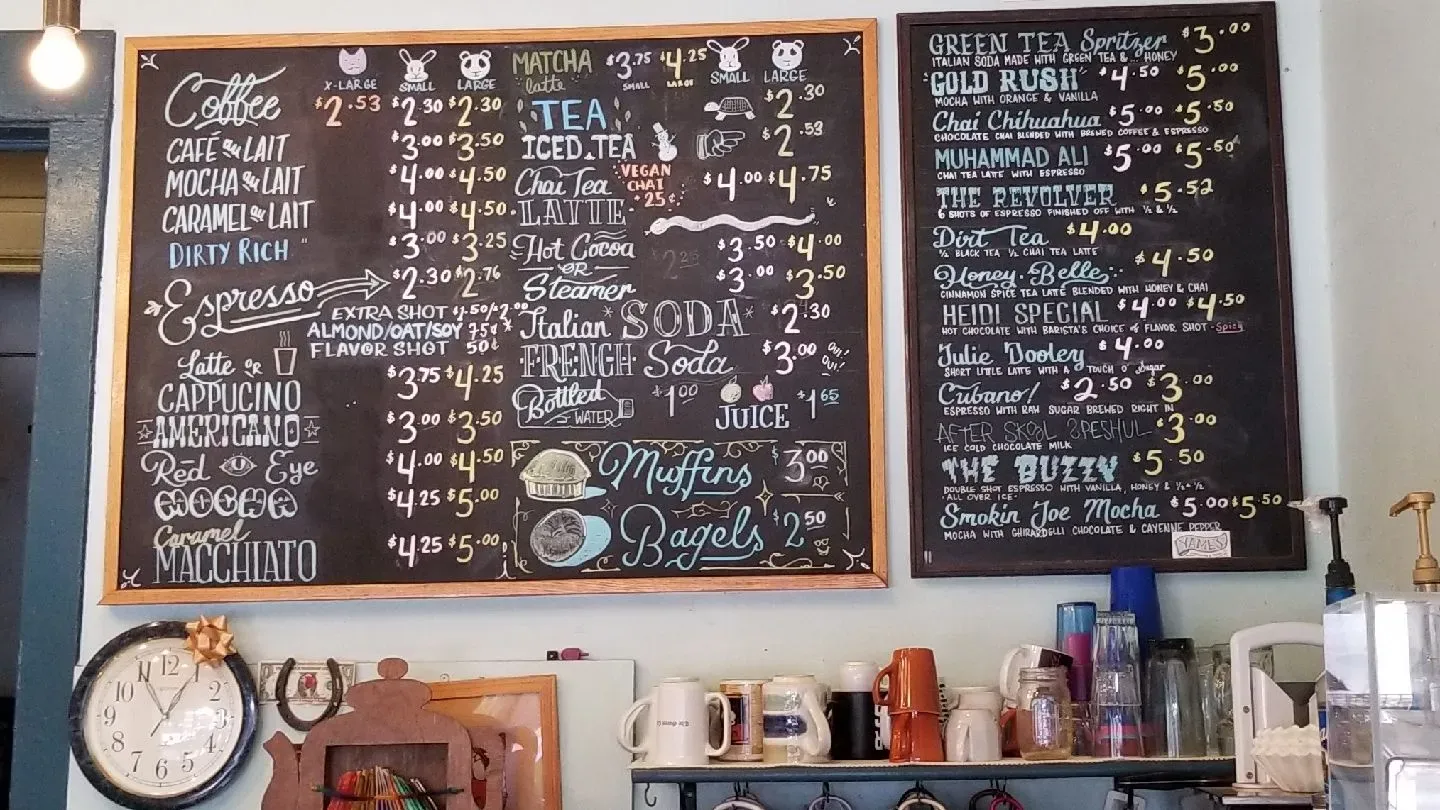 X-LARGE SMALL LARGE
Coffee $2.53 $2.30 $2.30
CAFÉ au LAIT $3.00 $3.50
MOCHA au LAIT $4.00 $4.50
CARAMEL au LAIT $4.00 $4.50
DIRTY RICH " $3.00 $3.25
Espresso $2.30 $2.76
EXTRA SHOT
ALMOND/OAT/SOY 75¢
FLAVOR SHOT 50¢
Latte OR
CAPPUCINO $3.75 $4.25
AMERICANO $3.00 $3.50
Red Eye $4.00 $4.50
MOCHA $4.25 $5.00
Caramel
MACCHIATO $4.25 $5.00
MATCHA $3.75 $4.25 SMALL LARGE
latte SMALL LARGE
TEA $2.30
ICED TEA $2.53
Chai Tea VEGAN CHAI +25¢ $4.00 $4.75
LATTE
Hot Cocoa $3.50 $4.00
OR
Steamer $3.00 $3.50
Italian SODA $2.30
FRENCH Soda $3.00 OUI! OUI!
Bottled WATER $1.00 JUICE $1.65
Muffins $3.00
Bagels $2.50
GREEN TEA Spritzer $3.00
ITALIAN SODA MADE WITH GREEN TEA &... HONEY
"GOLD RUSH" $4.50 $5.00
MOCHA WITH ORANGE & VANILLA
Chai Chihuahua $5.00 $5.50
CHOCOLATE CHAI BLENDED WITH BREWED COFFEE & ESPRESSO
MUHAMMAD ALI $5.00 $5.50
CHAI TEA LATTE WITH ESPRESSO
THE REVOLVER $5.52
6 SHOTS OF ESPRESSO FINISHED OFF WITH ½ & ½
Dirt Tea $4.00
½ BLACK TEA ½ CHAI TEA LATTE
Honey-Belle $4.50
CINNAMON SPICE TEA LATTE BLENDED WITH HONEY & CHAI
HEIDI SPECIAL $4.00 $4.50
HOT CHOCOLATE WITH BARISTA'S CHOICE of FLAVOR SHOT - Spicy
Julie Dooley $4.00
SHORT LITTLE LATTE WITH A TOUCH O' Sugar
Cubano! $2.50 $3.00
ESPRESSO WITH RAW SUGAR BREWED RIGHT IN
AFTER SKOOL SPESHUL $3.00
ICE COLD CHOCOLATE MILK
THE BUZZY $5.50
DOUBLE SHOT ESPRESSO WITH VANILLA, HONEY & ½ & ½
- ALL OVER ICE -
Smokin Joe Mocha $5.00 $5.50
MOCHA WITH GHIRARDELLI CHOCOLATE & CAYENNE PEPPER
12
1
2
3
4
5
6
7
8
9
10